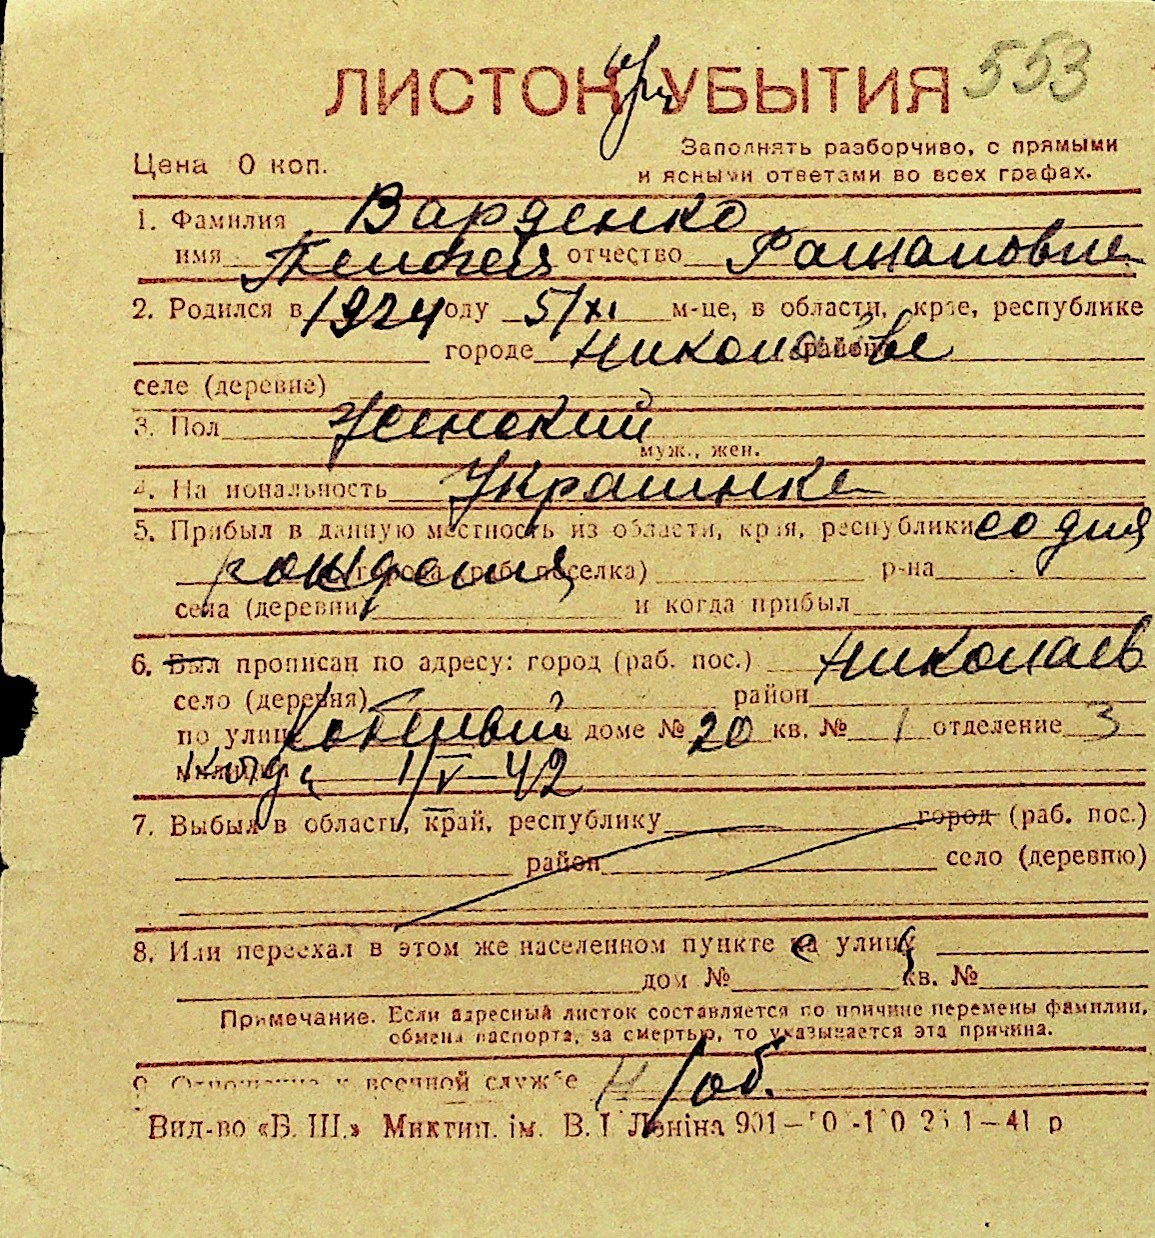 553
ЛИСТОК УБЫТИЯ
Цена 0 коп.
Заполнять разборчиво, с прямыми
и ясными ответами во всех графах.
1. Фамилия Варденко
имя отчество Романовна
2. Родился в 1924 году 5/XI м-це, в области, крае, республике
городе Николаеве районе
селе (деревне)
3. Пол Женский
муж., жен.
4. Национальность Украинка
5. Прибыл в данную местность из области, края, республики со дня
рождения города (раб. поселка) р-на
села (деревни) и когда прибыл
6. Был прописан по адресу: город (раб. пос.) Николаев
село (деревня) район
по улице доме № 20 кв. № 1 отделение 3
милиции Когда 1/V-42
7. Выбыл в область, край, республику город (раб. пос.)
район село (деревню)
8. Или переехал в этом же населенном пункте на улицу
дом № кв. №
Примечание. Если адресный листок составляется по причине перемены фамилии,
обмена паспорта, за смертью, то указывается эта причина.
9. Отношение к военной службе н/об.
Вид-во «Б. Ш.» Миктип. ім. В. І Леніна